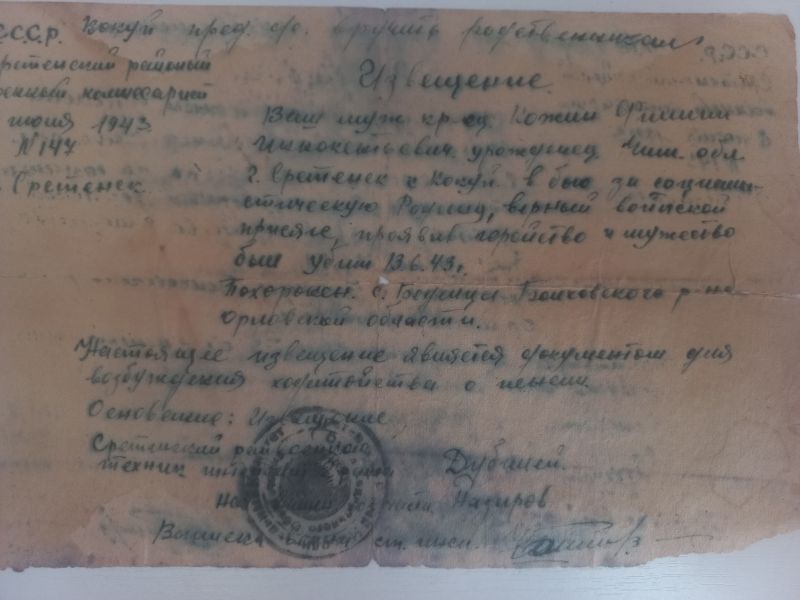 С.С.С.Р. Кокуй пред. с/с. вручить родственникам
ретенский районный
енный комиссариат
Извещение.
июня 1943
Ваш муж кр-ец Кожин
N 147
Иннокентьевич уроженец Чит. обл.
Сретенск.
г. Сретенск с Кокуй в бою за социали-
стическую Родину, верный войнской
присяге, проявив геройство и мужество
был убит 13.6.43 г.
Похоронен. с. Болховского р-на
Орловской области.
Настоящее извещение является документом для
возбуждения ходатайства о пенсии.
Основание: Извещение
Сретенский райвоенком
техник интендант Дубиней.
части Назиров
ст. инсп.